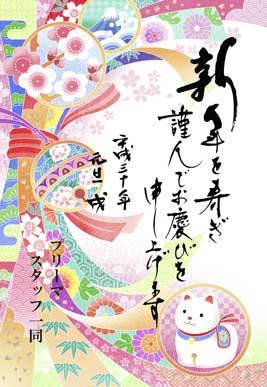 新年を寿ぎ
謹んでお慶びを
申し上げます
平成三十年
元旦 戌
フリーマ
スタッフ一同